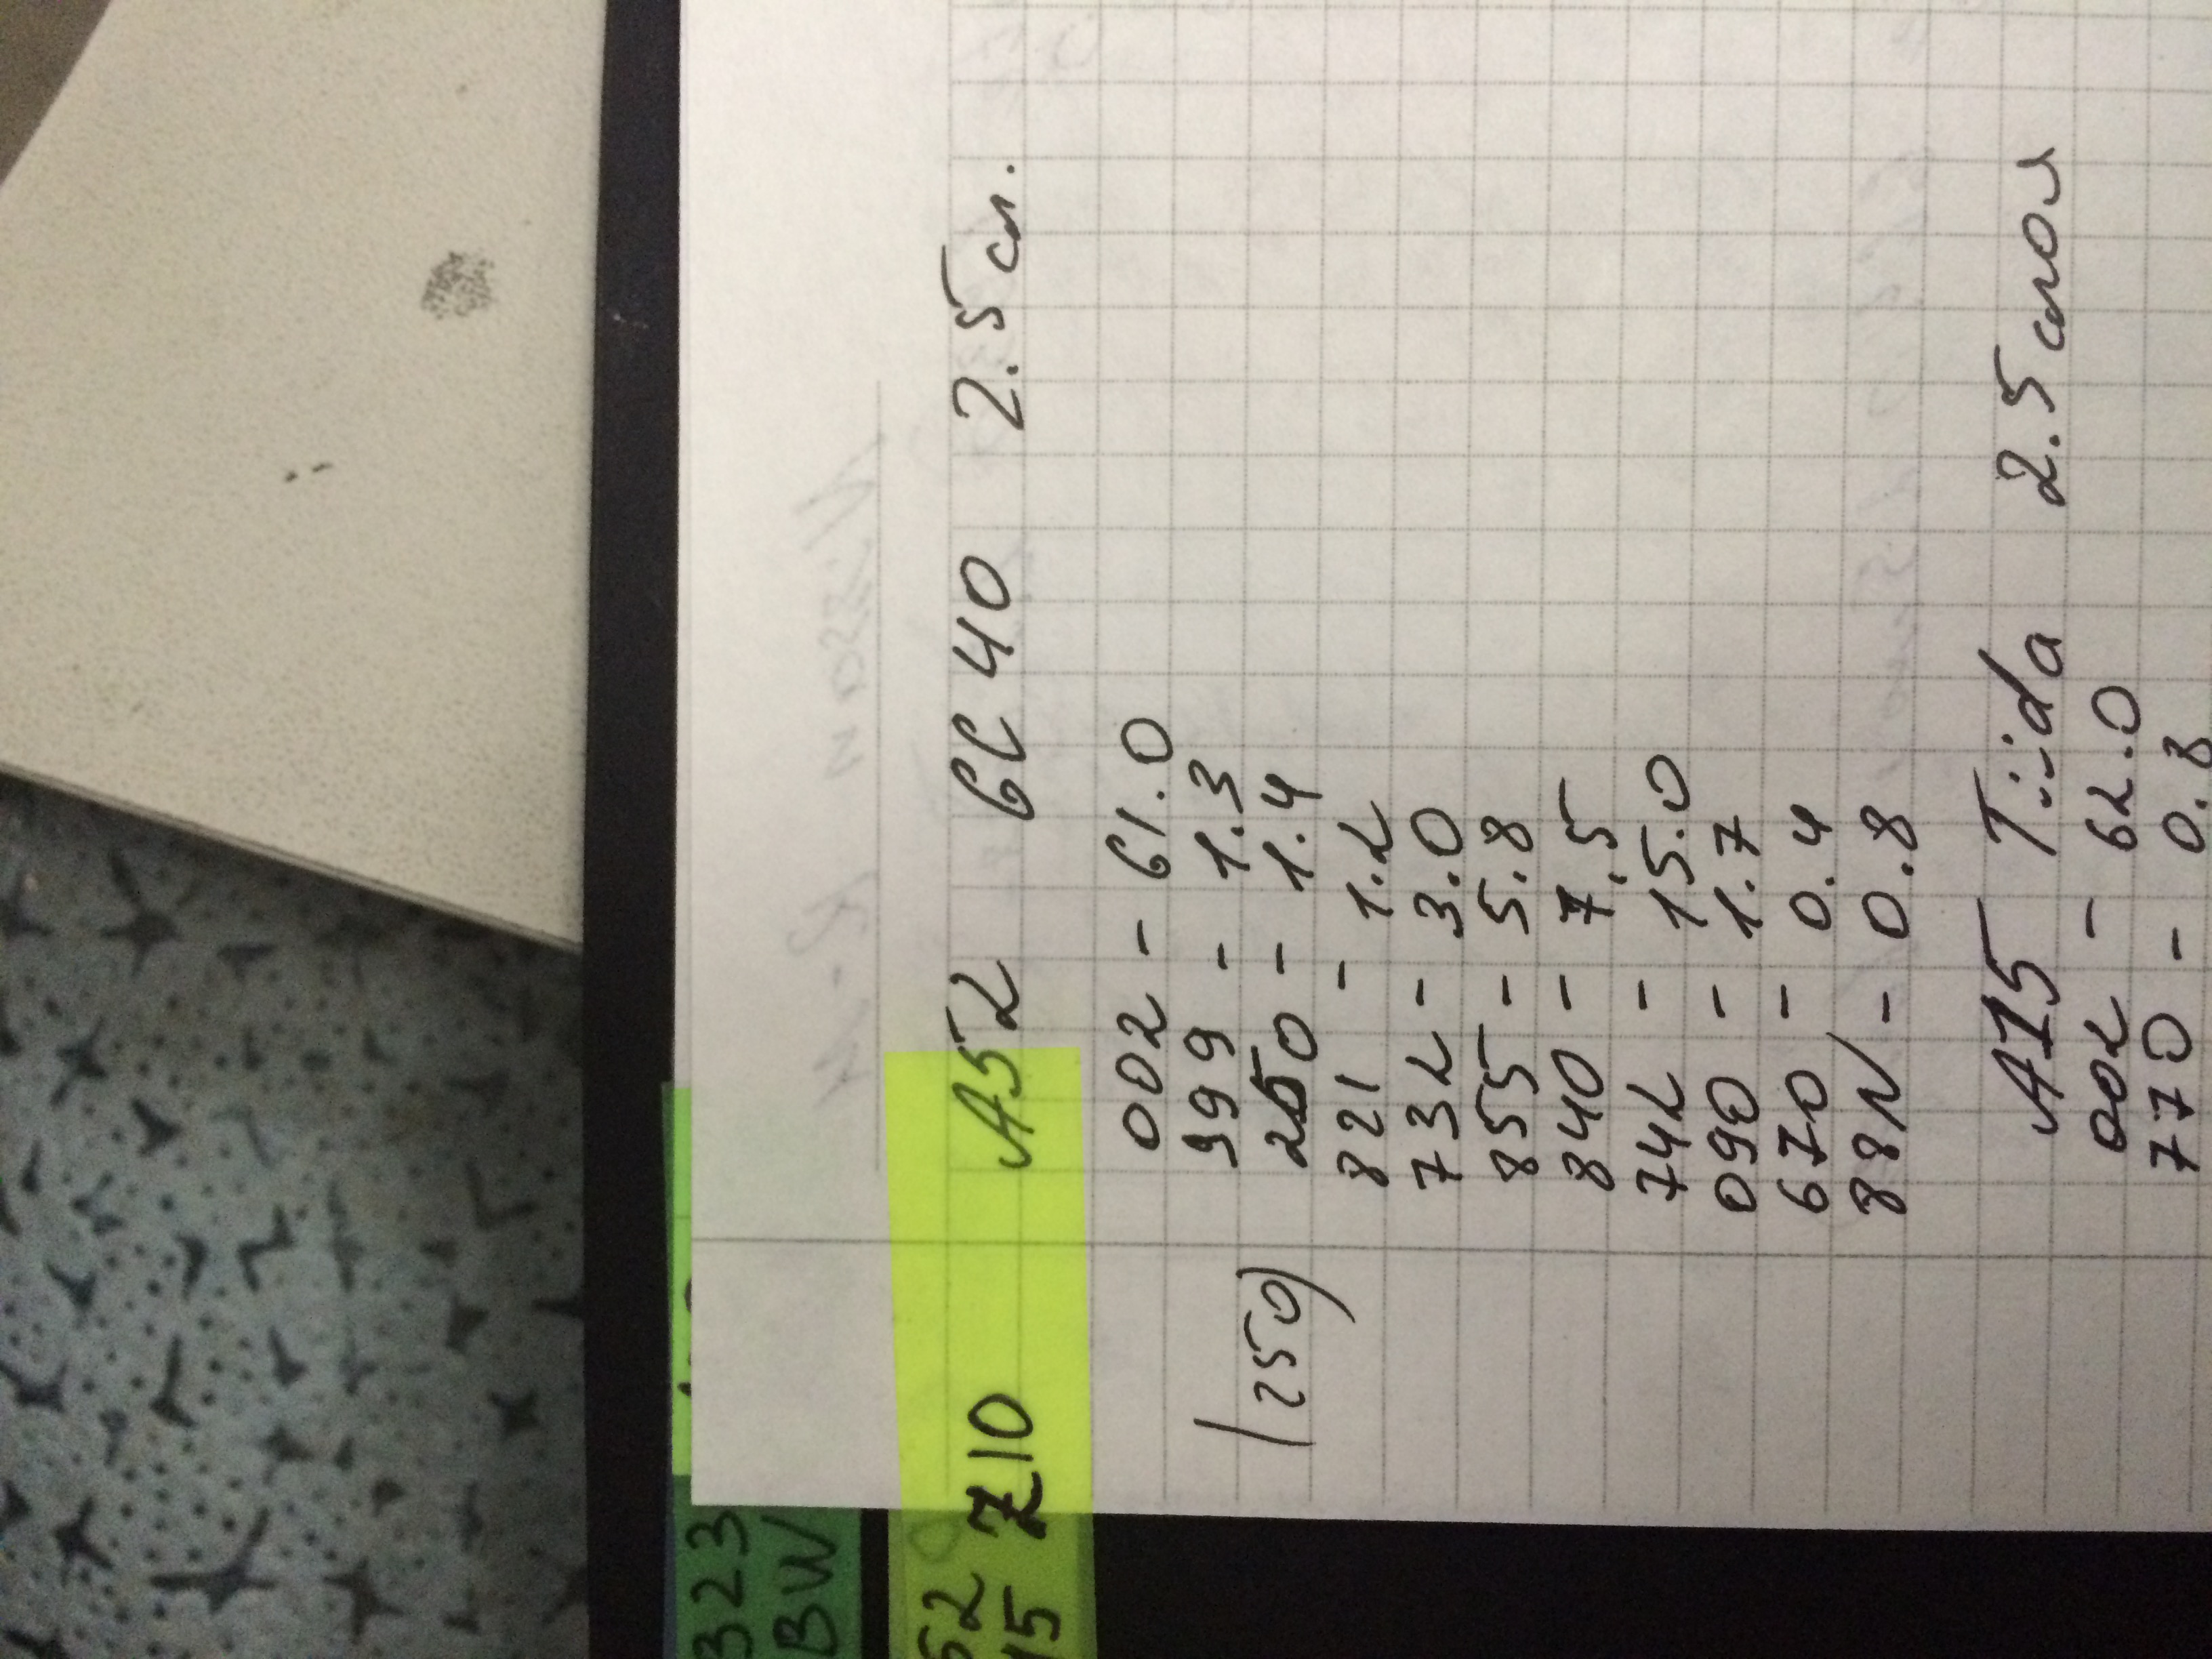 A52 6C40 2.5 сл.
002 - 61.0
999 - 1.3
(250) 250 - 1.4
821 - 1.2
732 - 3.0
855 - 5.8
840 - 7.5
742 - 15.0
090 - 1.7
670 - 0.4
88N - 0.8
A15 Tiida 2.5 слоя
002 - 62.0
770 - 0.8
323
BW
52 Z10
15